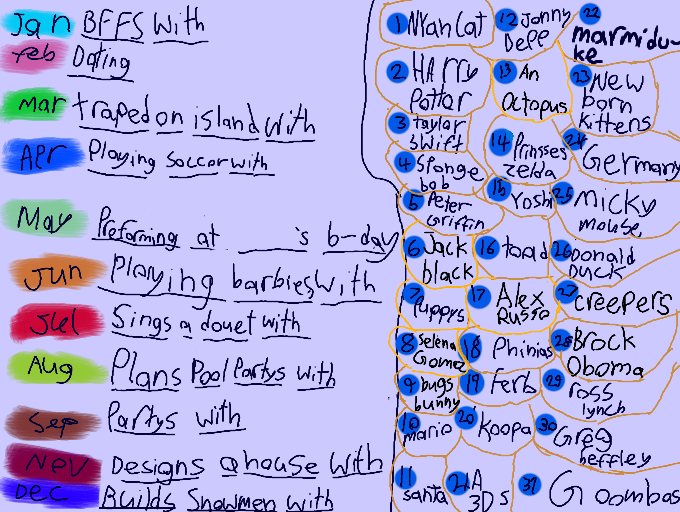 Jan BFFS with
feb Dating
Mar traped on island with
Apr Playing soccor with
May Preforming at ____'s b-day
Jun Playing barbies with
Jul Sings a douet with
Aug Plans Pool Partys with
Sep Partys with
Nev Designs a house with
DEC Builds Snowmen with
1 NYan Cat
2 HArry
Potter
3 taylor
swift
4 Sponge
bob
5 Peter
Griffin
6 Jack
black
7 Puppys
8 selena
Gomez
9 bugs
bunny
10 mario
11 santa
12 Jonny
Depp
13 An
octopus
14 Prinsses
zelda
15 Yoshi
16 toad
17 Alex
Russo
18 Phinias
19 ferb
20 Koopa
21 A
3DS
22
marmidu-
ke
23 New
born
kittens
24 Germany
25 micky
mouse
26 Donald
Duck
27 creepers
28 Brock
Oboma
29 ross
lynch
30 Greg
heffley
31 Goombas